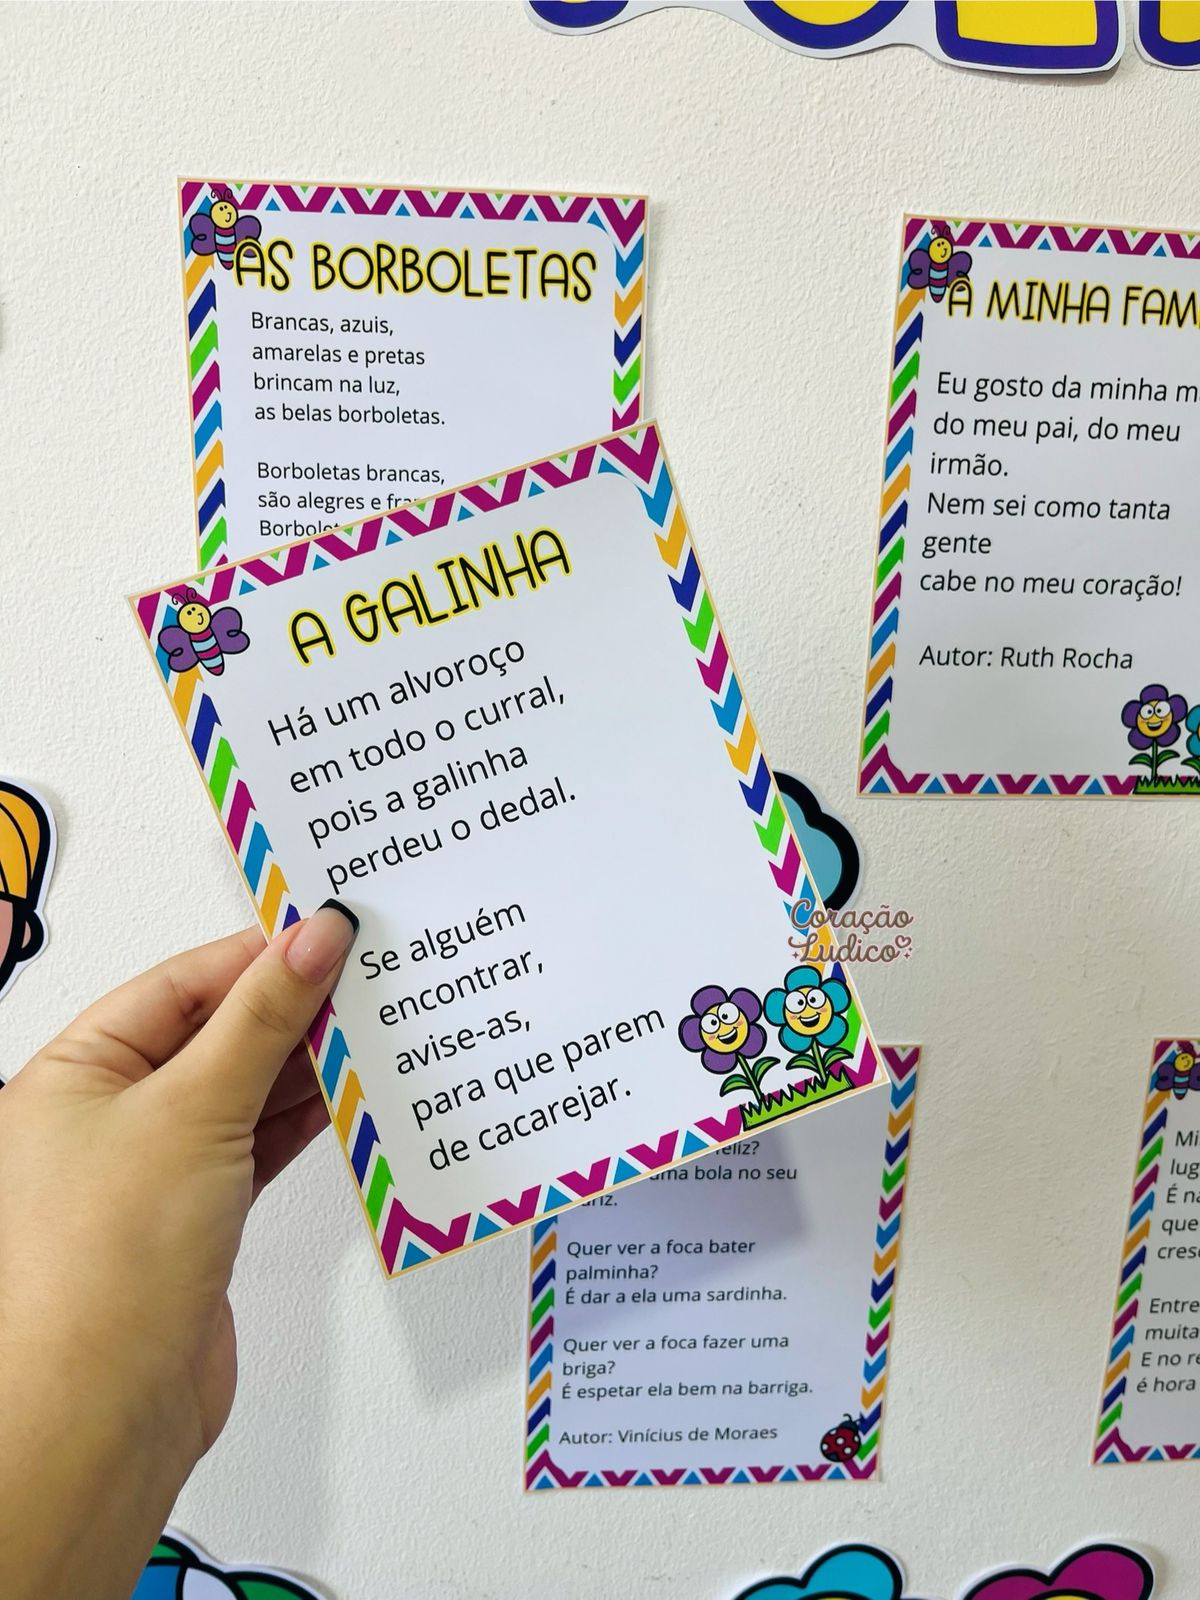 AS BORBOLETAS
Brancas, azuis,
amarelas e pretas
brincam na luz,
as belas borboletas.
Borboletas brancas,
são alegres e
A MINHA
Eu gosto da minha
do meu pai, do meu
irmão.
Nem sei como tanta
gente
cabe no meu coração!
Autor: Ruth Rocha
A GALINHA
Há um alvoroço
em todo o curral,
pois a galinha
perdeu o dedal.
Se alguém
encontrar,
avise-as,
para que parem
de cacarejar.
Coração
Ludico
feliz?
uma bola no seu
Quer ver a foca bater
palminha?
É dar a ela uma sardinha.
Quer ver a foca fazer uma
briga?
É espetar ela bem na barriga.
Autor: Vinícius de Moraes
que
Entre
muita
E no
é hora